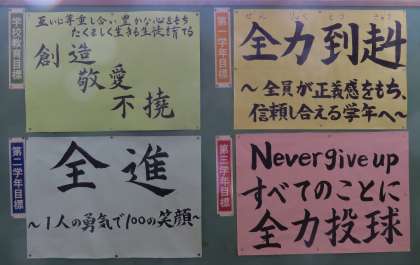 学校教育目標
互いに尊重し合い豊かな心をもち
たくましく生きる生徒を育てる
創造
敬愛
不撓
第一学年目標
全力到赳
～全員が正義感をもち、
信頼し合える学年へ～
第二学年目標
全進
～1人の勇気で100の笑顔～
第三学年目標
Never give up
すべてのことに
全力投球